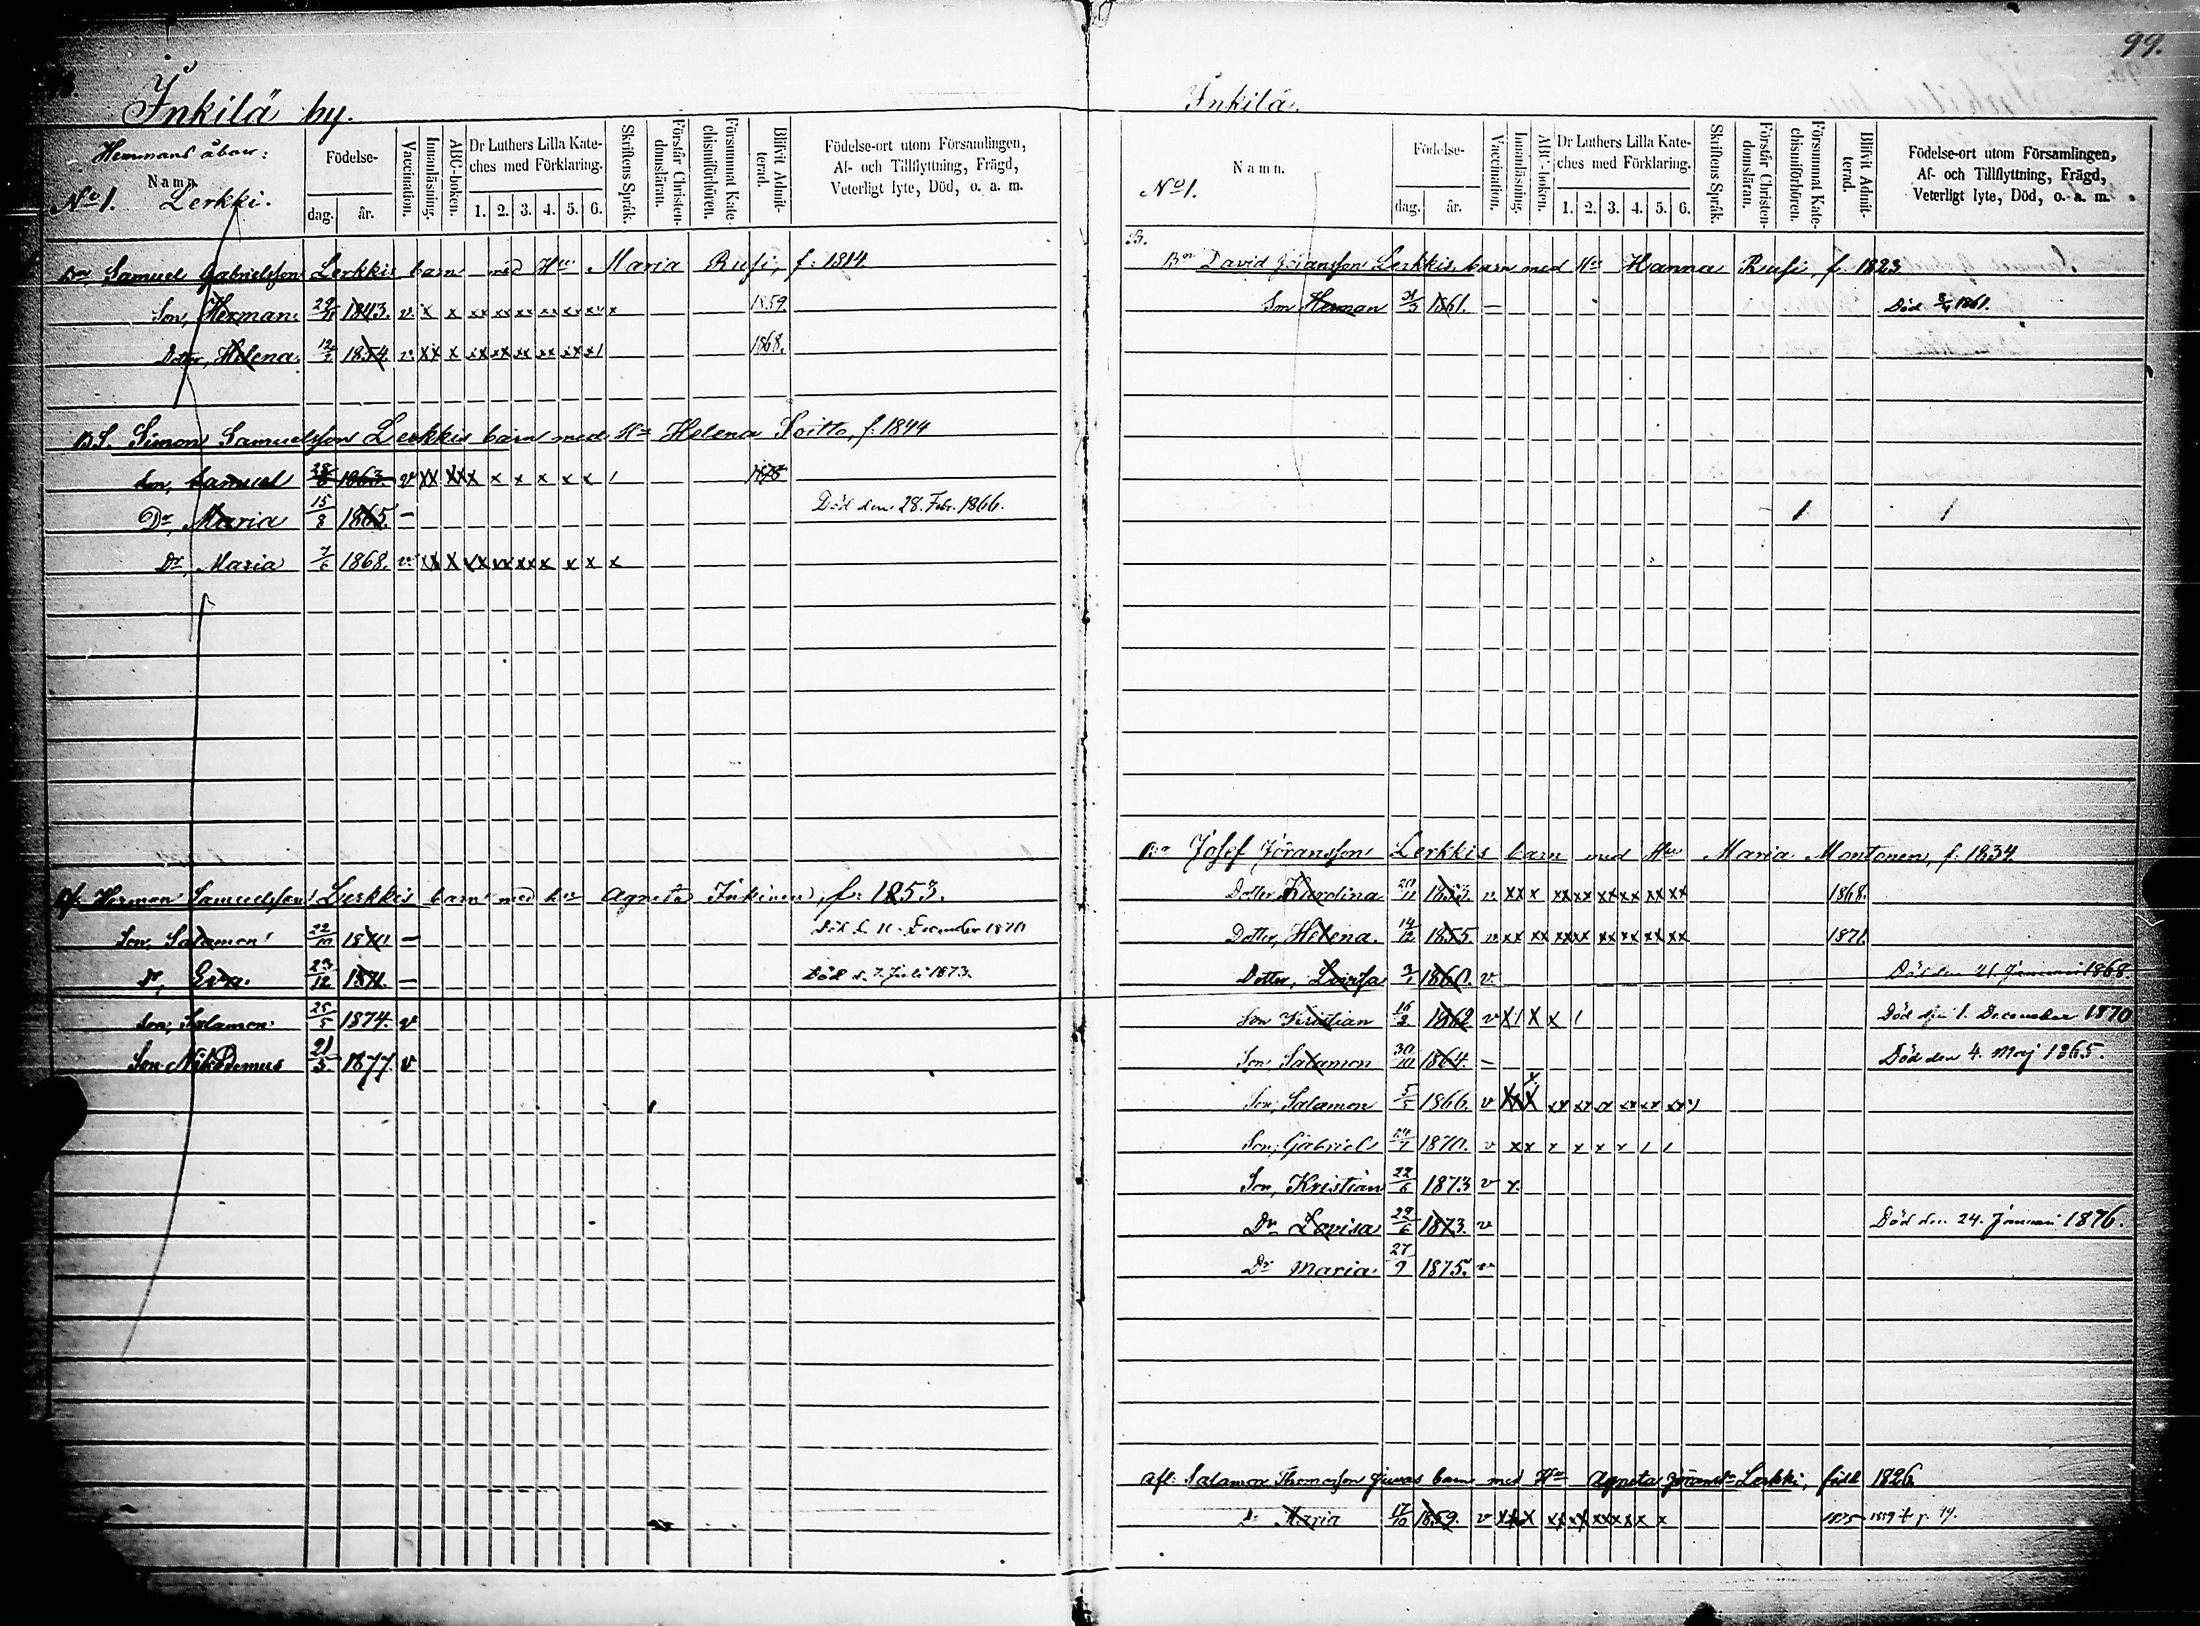 Inkilä by.
Hemmans åboer:
Namn.
No 1. Lerkki.
Födelse-
dag. år.
Vaccination.
Innanläsning.
ABC-boken.
Dr Luthers Lilla Kate-
ches med Förklaring.
1. 2. 3. 4. 5. 6.
Skriftens Språk.
Förstår Christen-
domsläran.
Försummat Kate-
chismiförhören.
Blifvit Admit-
terad.
Födelse-ort utom Församlingen,
Af- och Tillflyttning, Frägd,
Veterligt lyte, Död, o. a. m.
Bn Samuel Gabrielsson Lerkkis barn med Hu Maria Rusi, f. 1814
Son, Herman 1843. v x x xx xx xx xx xx xx x 1859.
Dotter, Helena. 1854. v xx x xx xx xx xx xx x1 1868.
BS. Simon Samuelsson Lerkkis barn med Hu Helena Soitto, f. 1844
Son, Samuel 1863. v xx xxx x x x x x 1
Dr, Maria 15/8 1865. – Död den 28. Febr. 1866.
Dr, Maria 7/6 1868. v xx x xx xx xx x x x x
Herman Samuelsson Lerkkis barn med hu Agneta Inkinen, f. 1853.
Son, Salamon 22/10 1870 – Död d. 11. December 1870
Dr, Eva. 23/12 1871. – Död d. 7. Juli 1873.
Son, Salamon. 25/5 1874. v
Son Nikodemus 21/3. 1877. v
99.
Inkilä.
Namn.
No 1.
Födelse-
dag. år.
Vaccination.
Innanläsning.
ABC-boken.
Dr Luthers Lilla Kate-
ches med Förklaring.
1. 2. 3. 4. 5. 6.
Skriftens Språk.
Förstår Christen-
domsläran.
Försummat Kate-
chismiförhören.
Blifvit Admit-
terad.
Födelse-ort utom Församlingen,
Af- och Tillflyttning, Frägd,
Veterligt lyte, Död, o. a. m.
B.
Bn David Jöransson Lerkkis barn med Hu Hanna Rusi, f. 1823
Son Herman 31/3 1861. – Död 1861.
Bn Josef Jöransson Lerkkis barn med Hu Maria Montonen, f. 1834
Dotter Karolina 20/11 1853. v. xx x xx xx xx xx xx xx 1868.
Dotter, Helena. 14/12 1855. v xx xx xx xx xx xx xx xx 1871.
Dotter, Lovisa 3/1 1860. v. Död den 21. Januari 1868.
Son Kristian 16/3 1862 v x1 x x 1 Död den 1. December 1870
Son, Salamon 30/10 1864. – Död den 4. Maj 1865.
Son, Salamon 5/5 1866. v xx x xx xx xx xx xx xx
Son, Gabriel 24/7 1870. v xx x x x x 1 1
Son, Kristian 22/6 1873 v x.
Dr Lovisa 22/6 1873. v Död den 24. Januari 1876.
Dr Maria 27/9 1875. v
Afl. Salamon Thomasson Juvas barn med Hu Agneta Jöransdr Lerkki, född 1826
Dr Maria 17/10 1859. v xx x xx xx xx xx x x 1875